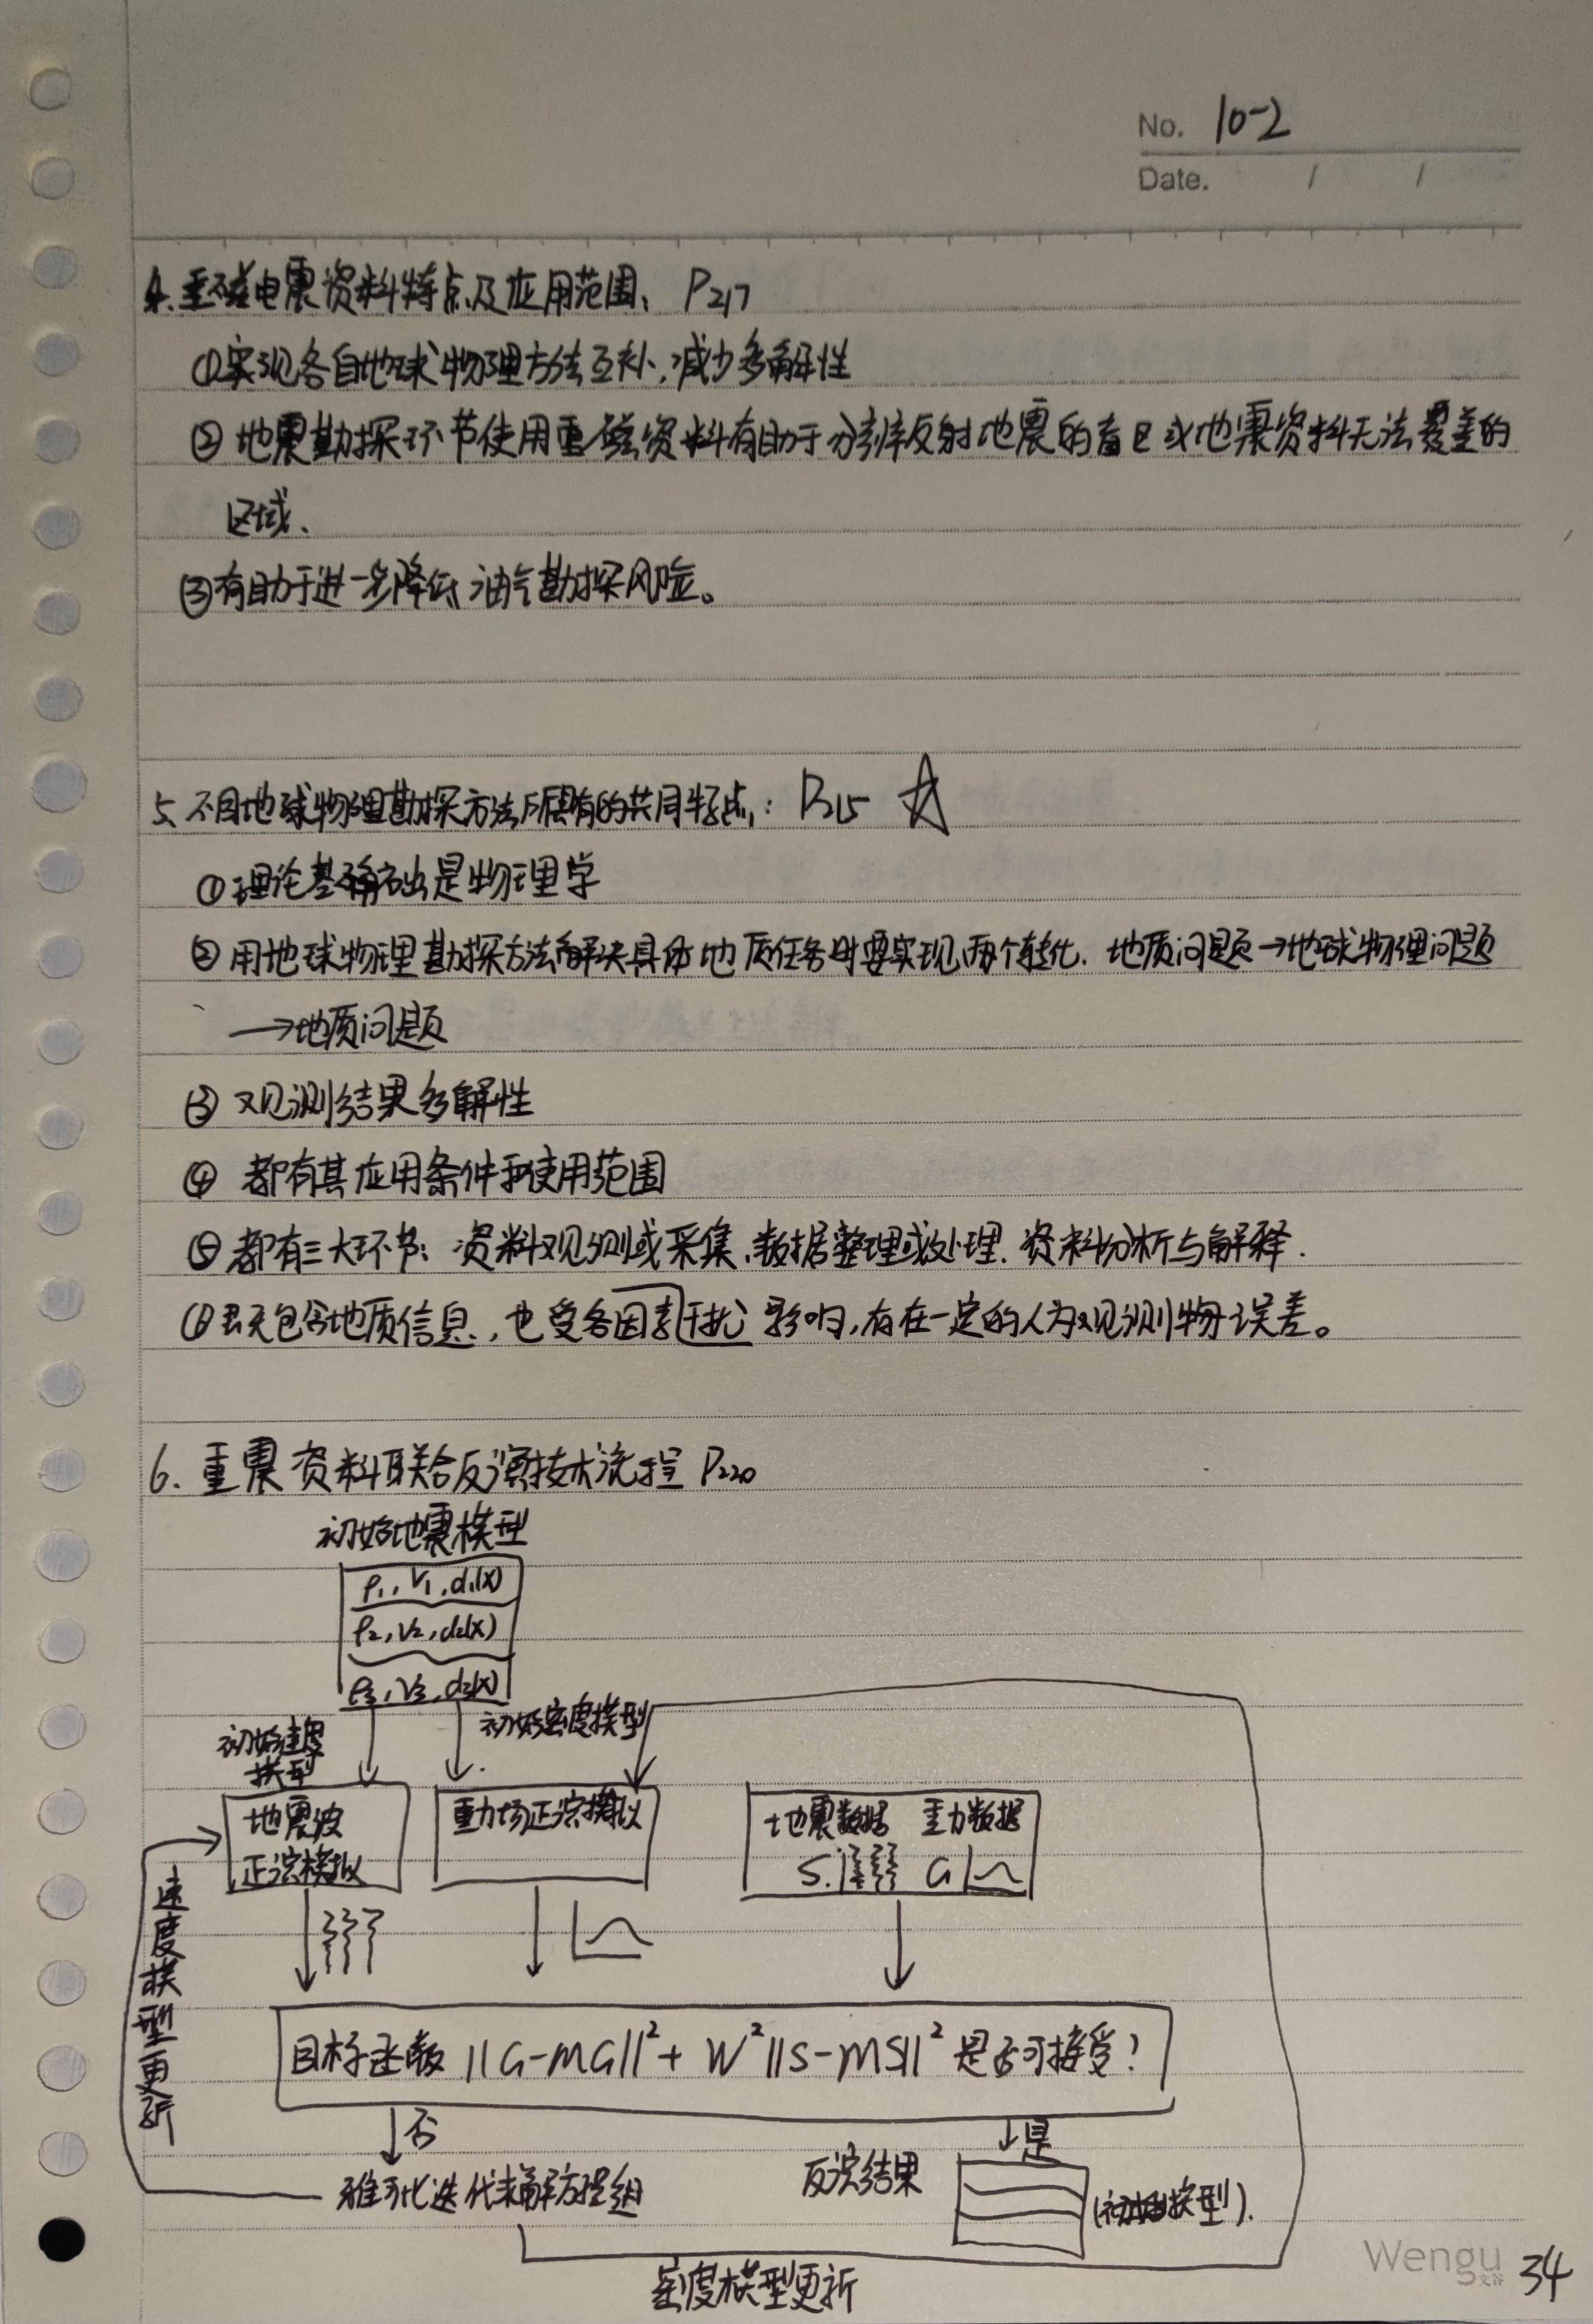 No. 10-2
Date. / /
4.重磁电震资料特点及应用范围、P217
①实现各自地球物理方法互补,减少多解性
②地震勘探环节使用重磁资料有助于分辨反射地震的盲区或地震资料无法覆盖的
区域、
③有助于进一步降低油气勘探风险。
5、不同地球物理勘探方法所具有的共同特点:P215 ☆
①理论基础是物理学
②用地球物理勘探方法解决具体地质任务时要实现两个转化.地质问题→地球物理问题
→地质问题
③观测结果多解性
④都有其应用条件和使用范围
⑤都有三大环节:资料观测或采集、数据整理或处理.资料分析与解释.
包含地质信息,也受各因素干扰影响,存在一定的人为观测误差。
6.重震资料联合反演技术流程 P220
初始地震模型
ρ1,V1,d1(x)
ρ2,V2,d2(x)
ρ3,V3,d3(x)
初始速度
模型
初始密度模型
地震波
正演模拟
重力场正演模拟
地震数据 重力数据
S. G
速度模型更新
目标函数||G-MG||²+W²||S-MS||²是否可接受?
否
是
雅可比迭代求解方程组
反演结果
(初始模型).
密度模型更新
Wengu
文谷
34